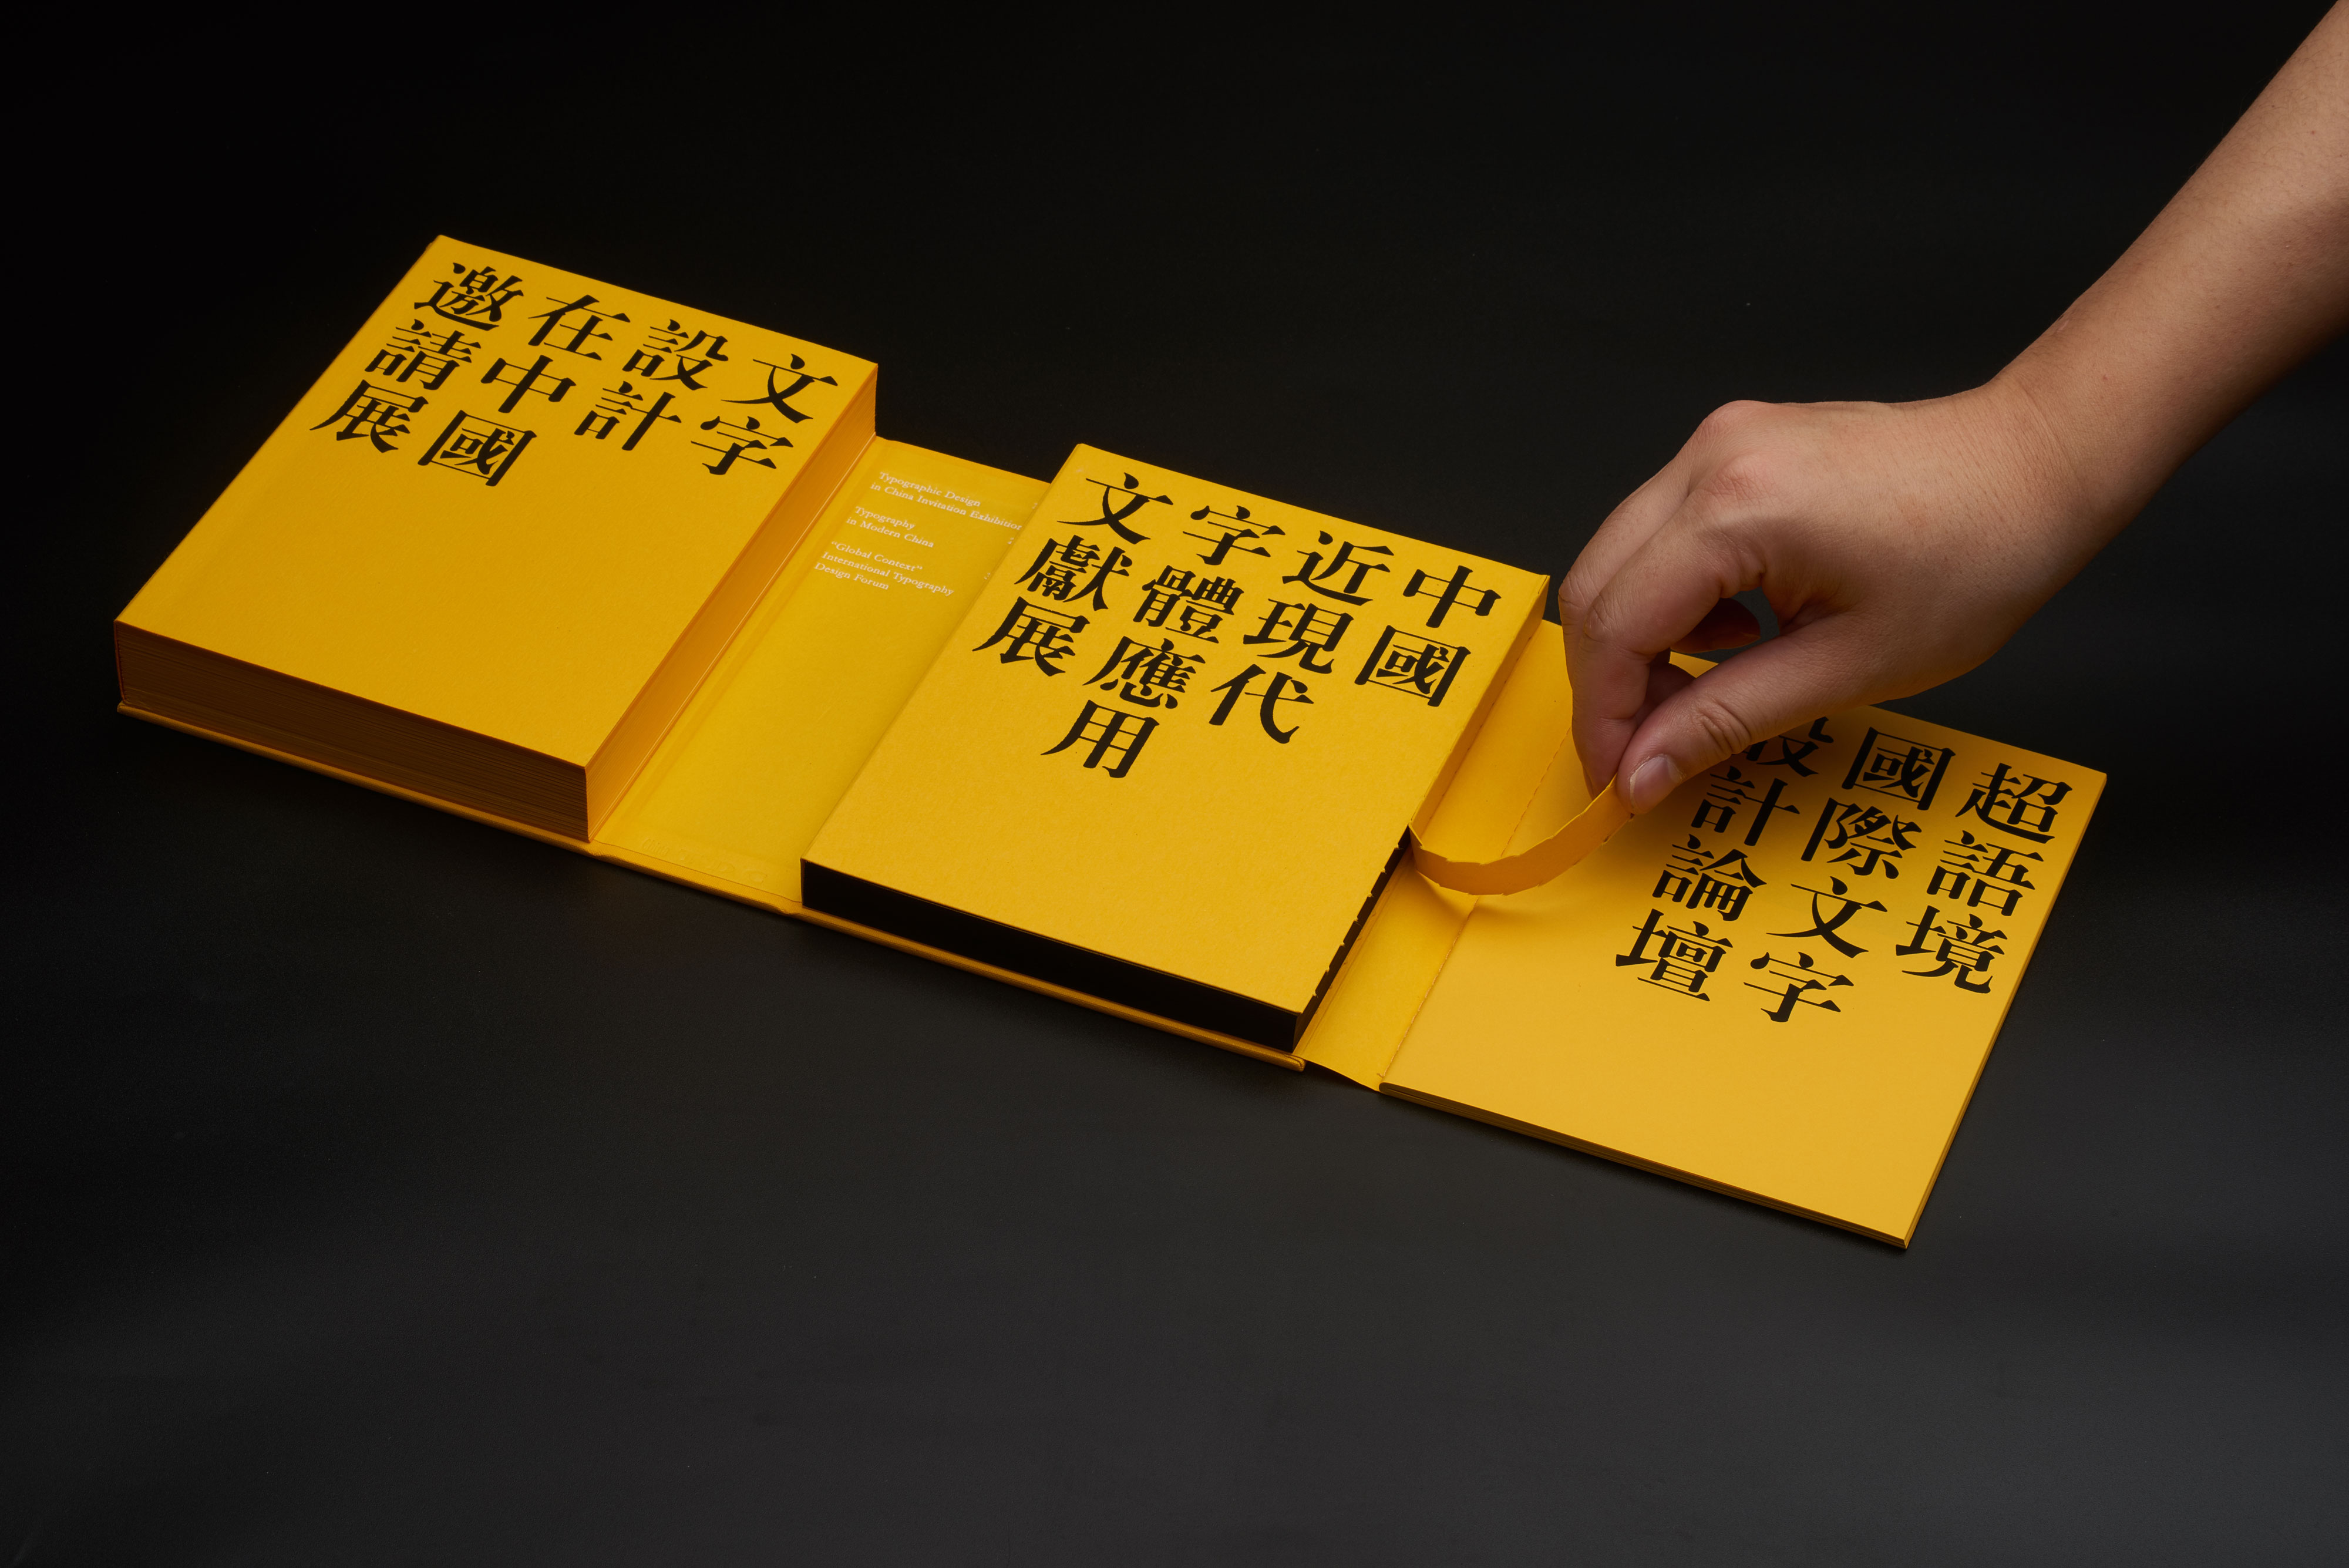 文字
設計
在中國
邀請展
Typographic Design
in China Invitation Exhibition
Typography
in Modern China
"Global Context"
International Typography
Design Forum
中國
近現代
字體應用
文獻展
超語境
國際文字
設計論壇